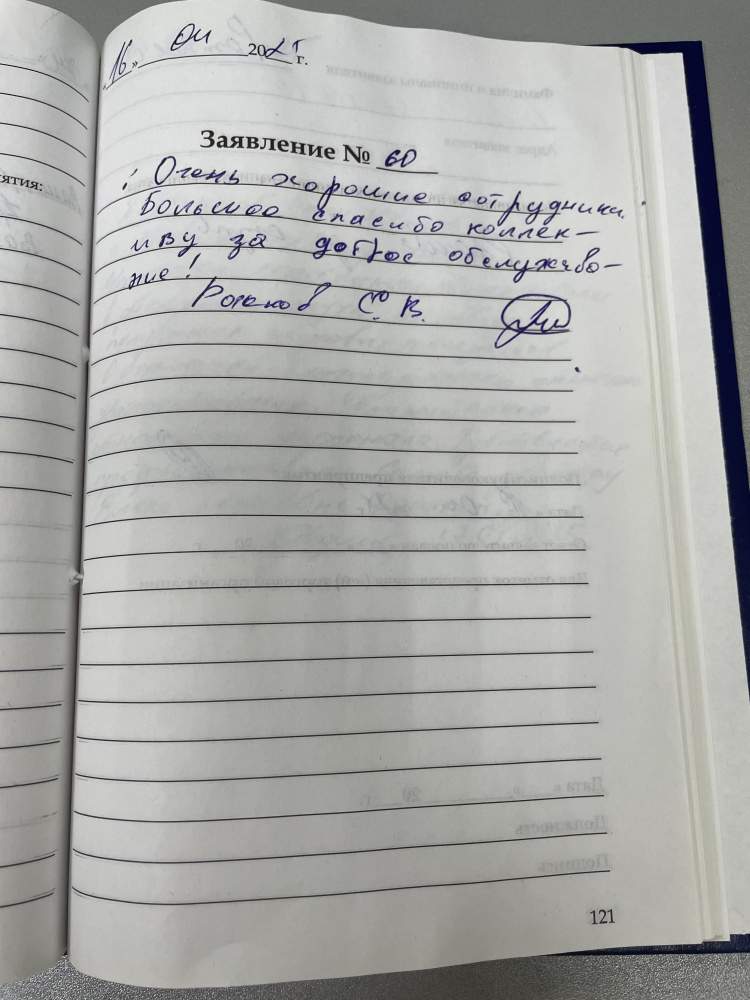 «16» 04 202 г.
Заявление № 60
ятия:
Очень хорошие сотрудники.
Большое спасибо коллек-
иву за доброе обслужива-
ние!
С. В.
121